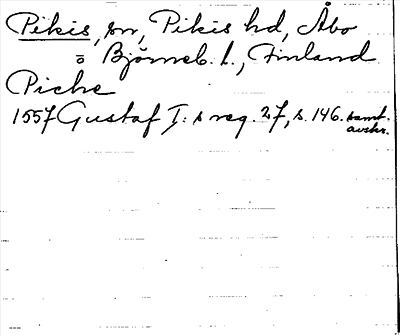 Pikis, sn, Pikis hd, Åbo
o Björneb. l., Finland
Picke
1557 Gustaf I:s reg. 27, s. 146. samt.
avskr.